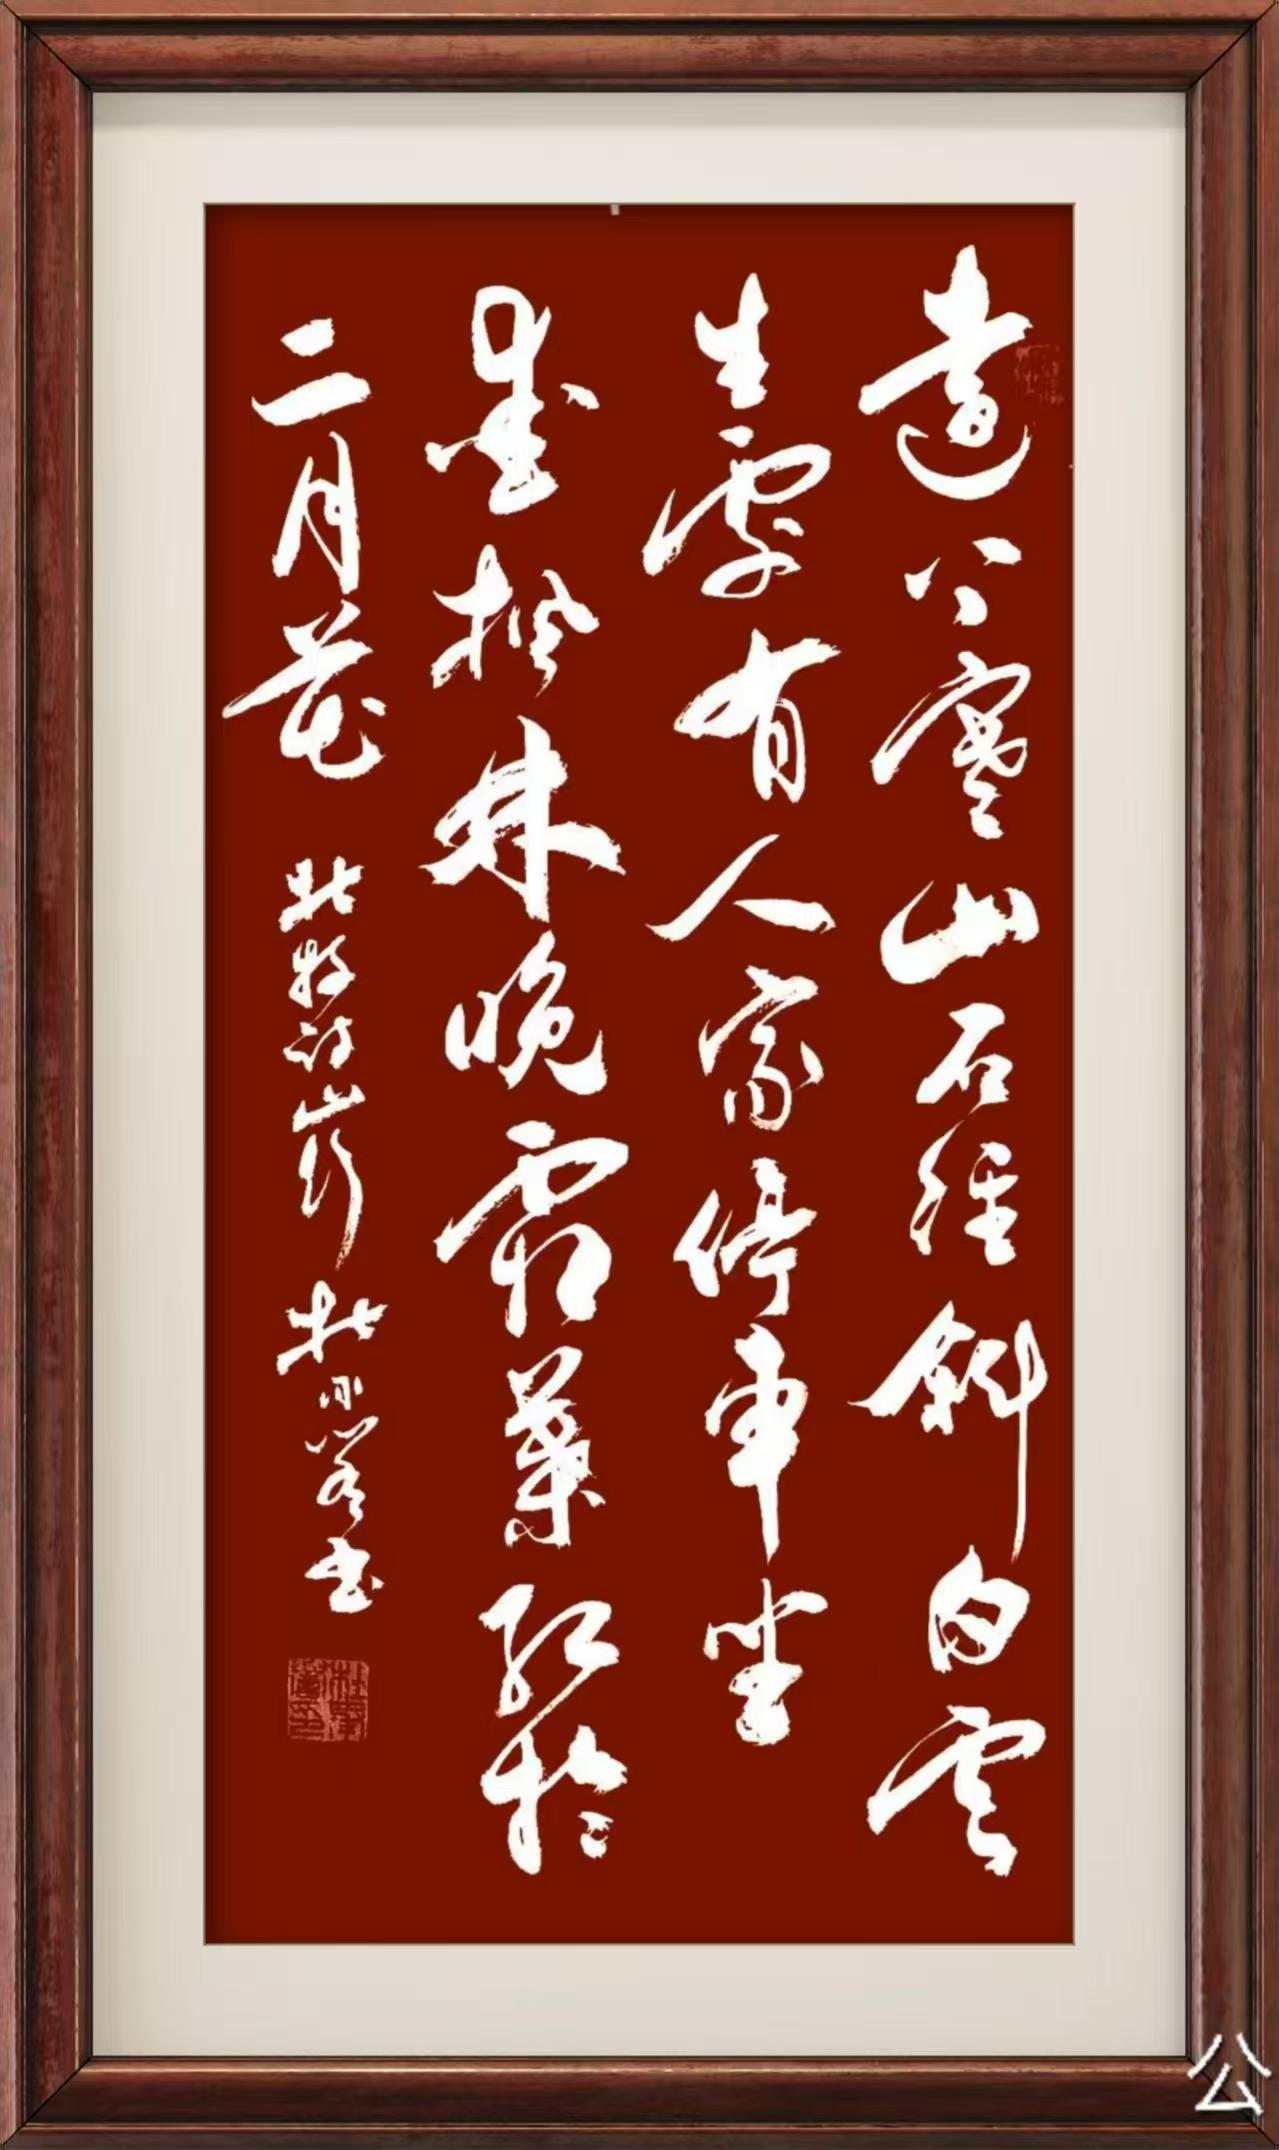 远上寒山石径斜白云
生处有人家停车坐
爱枫林晚霜叶红于
二月花
杜牧诗山行
杜永
书
公